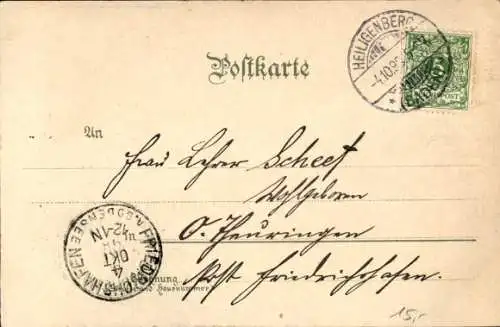 Postkarte
HEILIGENBERG
4.10.98
5
POST
An
Frau Lehrer Scheef
Wohlgeboren
O. Theuringen
Post Friedrichshafen.
FRIEDRICHSHAFEN
A. BODENSEE
4
OKT
12-1N
Wohnung
und Hausnummer
15,-